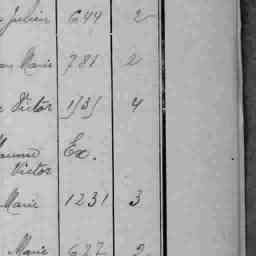 Julien 644 2
Marie 781 2
Victor 1535 4
Ex.
Victor
Marie 1231 3
Marie 677 2